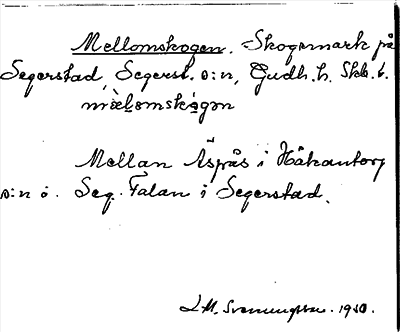 Mellomskogen. Skogsmark på
Segerstad, Segerst. s:n, Gudh. h. Skb. l.
mèlomskògən
Mellan Äspås i Håkantorp
s:n o. Seg. Falan i Segerstad.
1930.